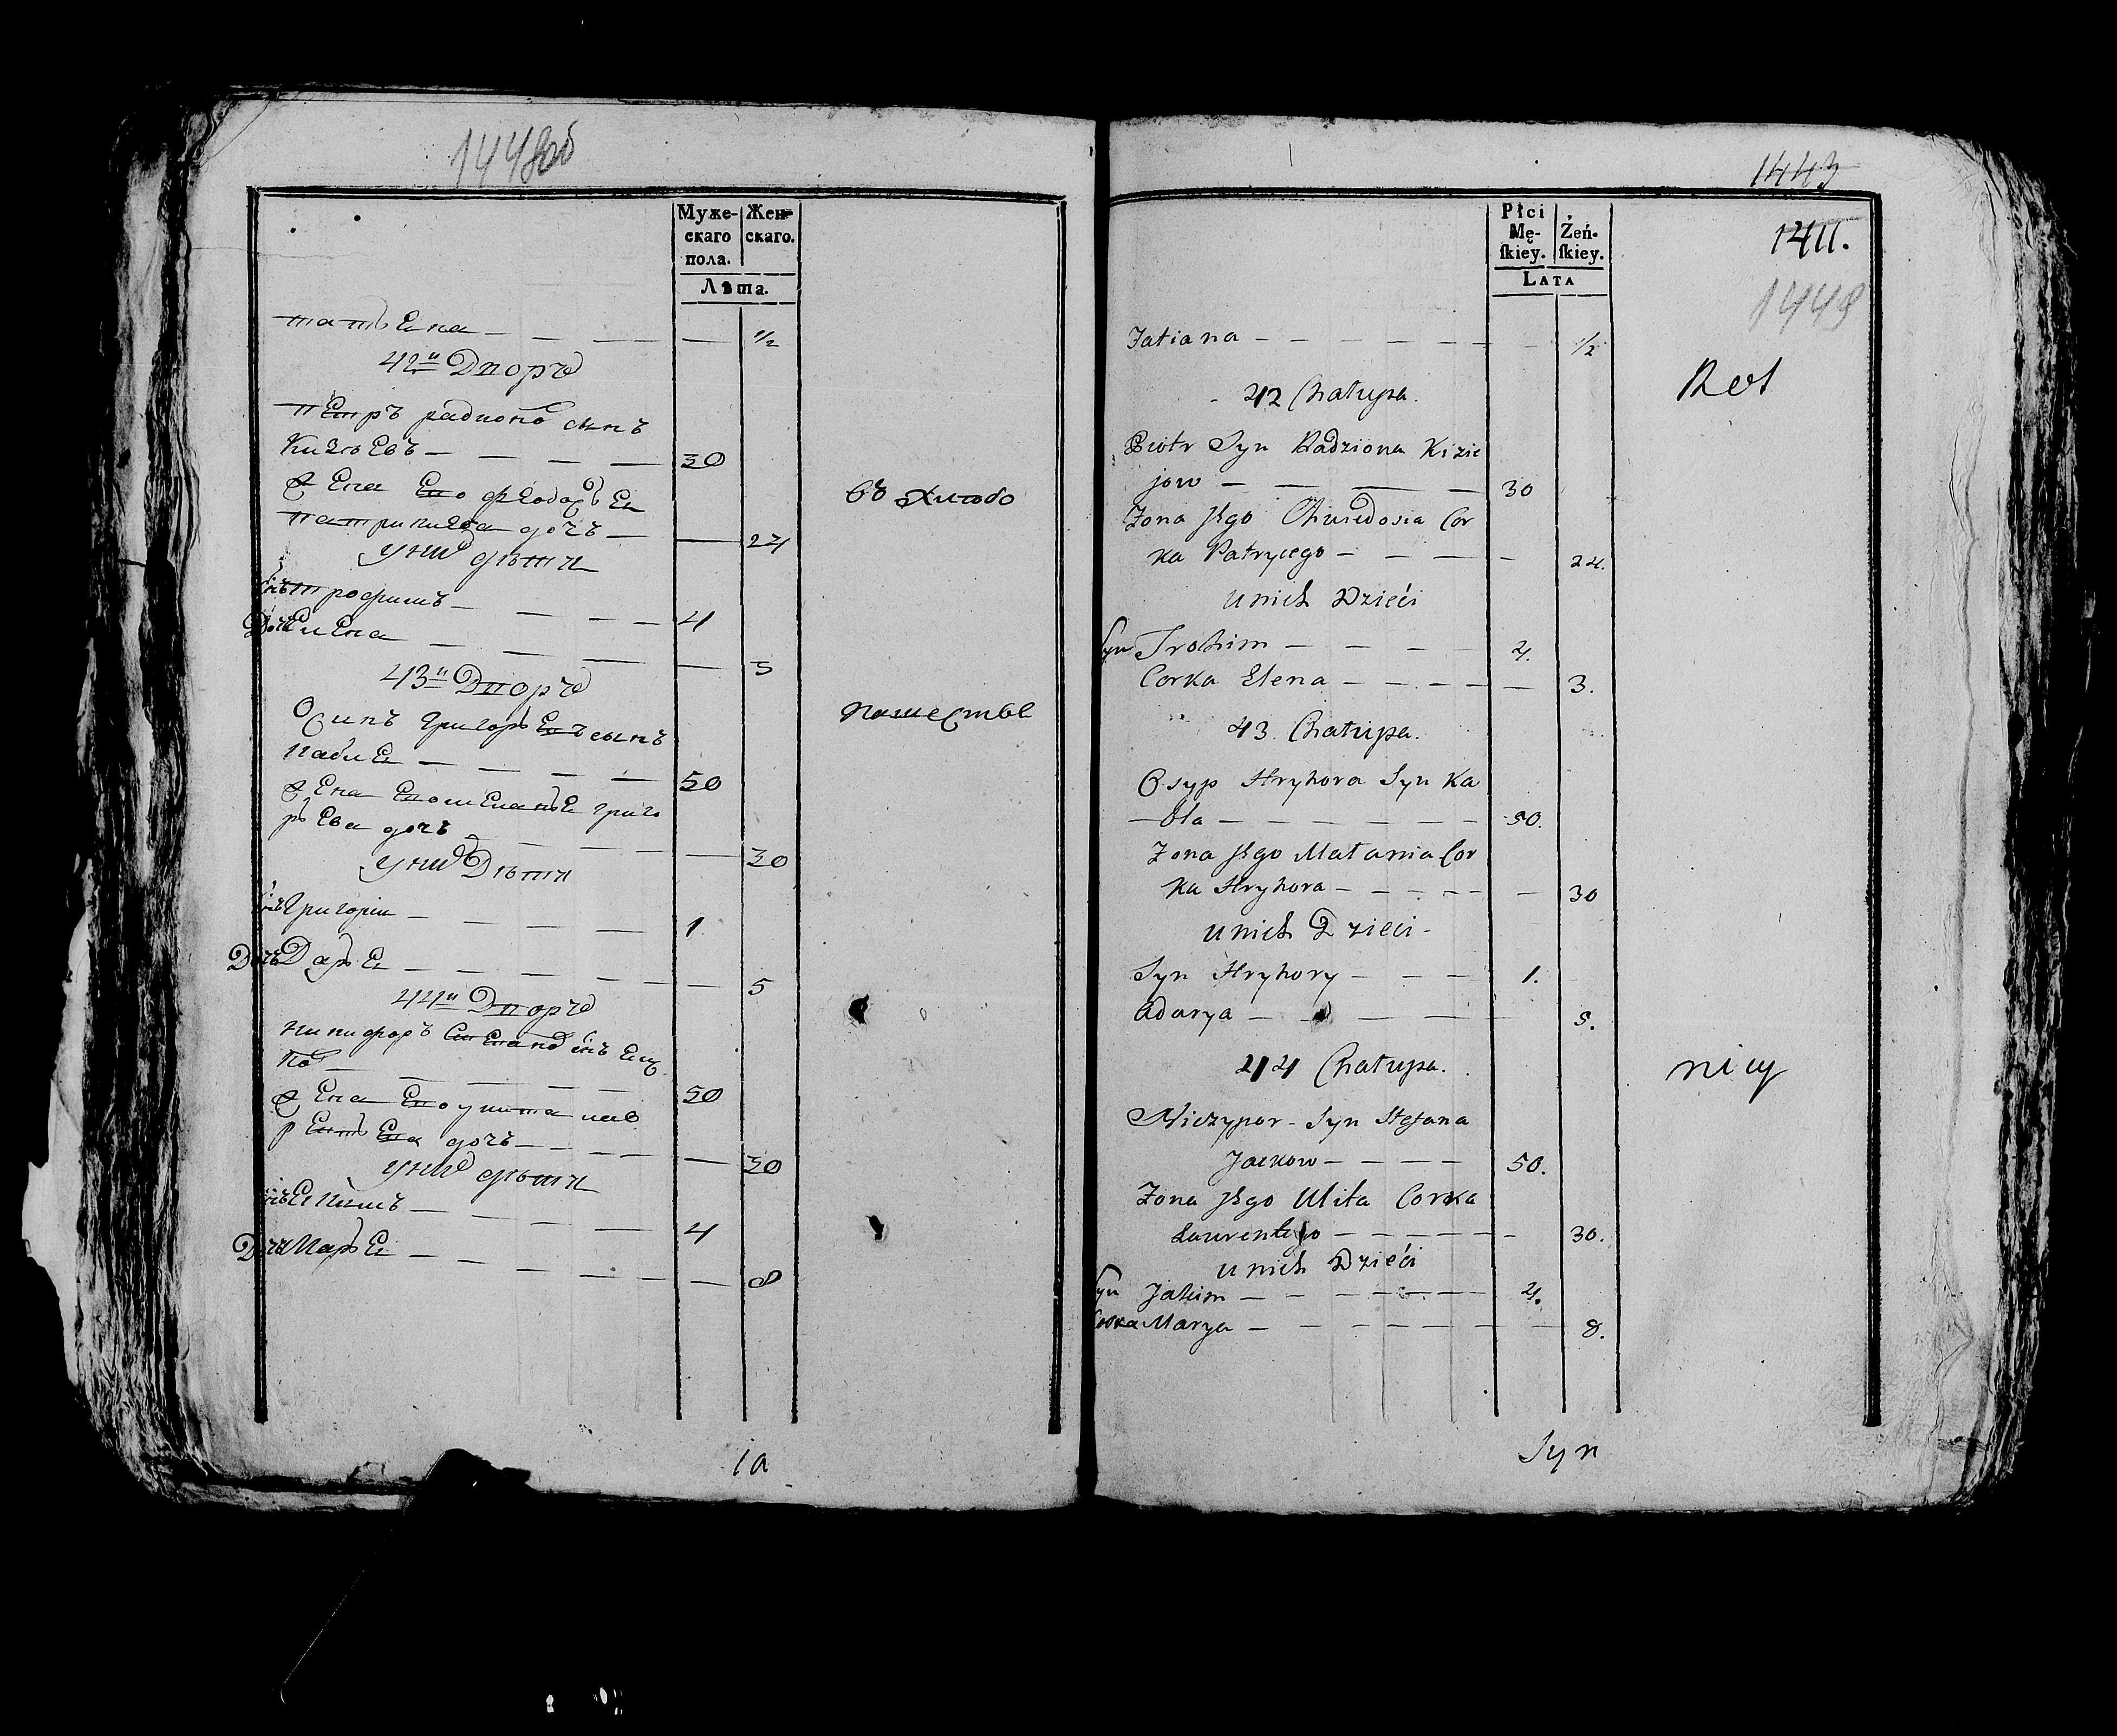 1448об
Муже-
скаго
пола.
Жен-
скаго.
Лѣта.
татьена — — — — — 1/2
42й Дворъ
петръ радионов сынъ
Кизьевъ — — — — 30
жена его федосья
патрикиева дочь — — 24
у них дѣти
сынъ трофимъ — — — — 4
Дочь елена — — — — — 3
43й Дворъ
Осипъ григорьевъ сынъ
кабле — — — — 50
жена его меланья григо
рьева дочь — — — — 30
у них Дѣти
сынъ григории — — — — 1
Дочь Дарья — — — — — 5
44й Дворъ
никифоръ степанов сынъ
— — — — — 50
жена его улита лав
рентьева дочь — — — — 30
у них дѣти
сынъ екимъ — — — — 4
Дочь Марья — — — — — 8
въ
1443
Płci
Mę-
ſkiey.
Żeń-
ſkiey.
Lata
1411.
1449
Tatiana — — — — — — 1/2
42 Chałupa.
Piotr Syn Radziona Kizie
jow — — — — 30
Zona Jego Chwiedosia Cor
ka Patrycego — — — — 24.
u nich Dzieći
Syn Trochim — — — — 4.
Corka Elena — — — — — 3.
43. Chałupa.
Osyp Hryhora Syn Ka
bla — — — — — — 50.
Zona Jego Małania Cor
ka Hryhora — — — — — 30
u nich Dzieci —
Syn Hryhory — — — 1.
Adarya — — — — — 5.
44 Chałupa.
Niczypor — Syn Stefana
Jackow — — — — 50.
Zona Jego Ulita Corka
Laurentego — — — — — — 30.
u nich Dzieći
Syn Jakim — — — — — — 4.
Corka Marya — — — — — — — 8.
nicy
Syn